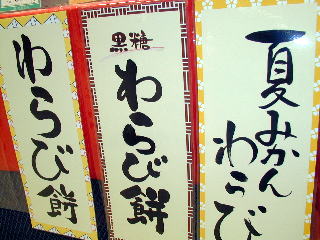 夏みかん
わらび
黒糖
わらび餅
わらび餅